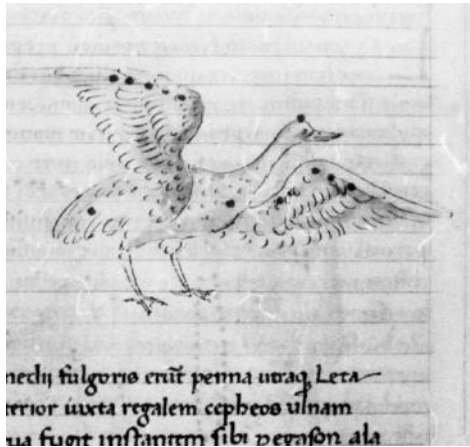 medii fulgoris erūt penna utraq; Leta
terior iuxta regalem cepheos ulnam
ua fugit instantem sibi pegason ala